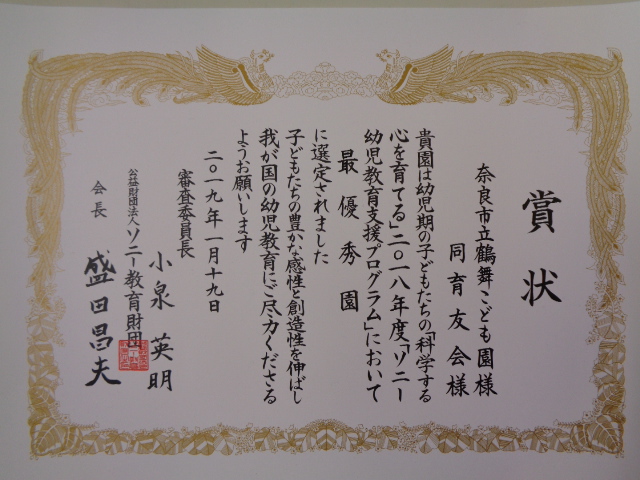 賞状
奈良市立鶴舞こども園様
同育友会様
貴園は幼児期の子どもたちの「科学する
心を育てる」二〇一八年度「ソニー
幼児教育支援プログラム」において
最優秀園
に選定されました
子どもたちの豊かな感性と創造性を伸ばし
我が国の幼児教育にご尽力くださる
ようお願いします
二〇一九年一月十九日
審査委員長
小泉英明
公益財団法人ソニー教育財団
会長
盛田昌夫